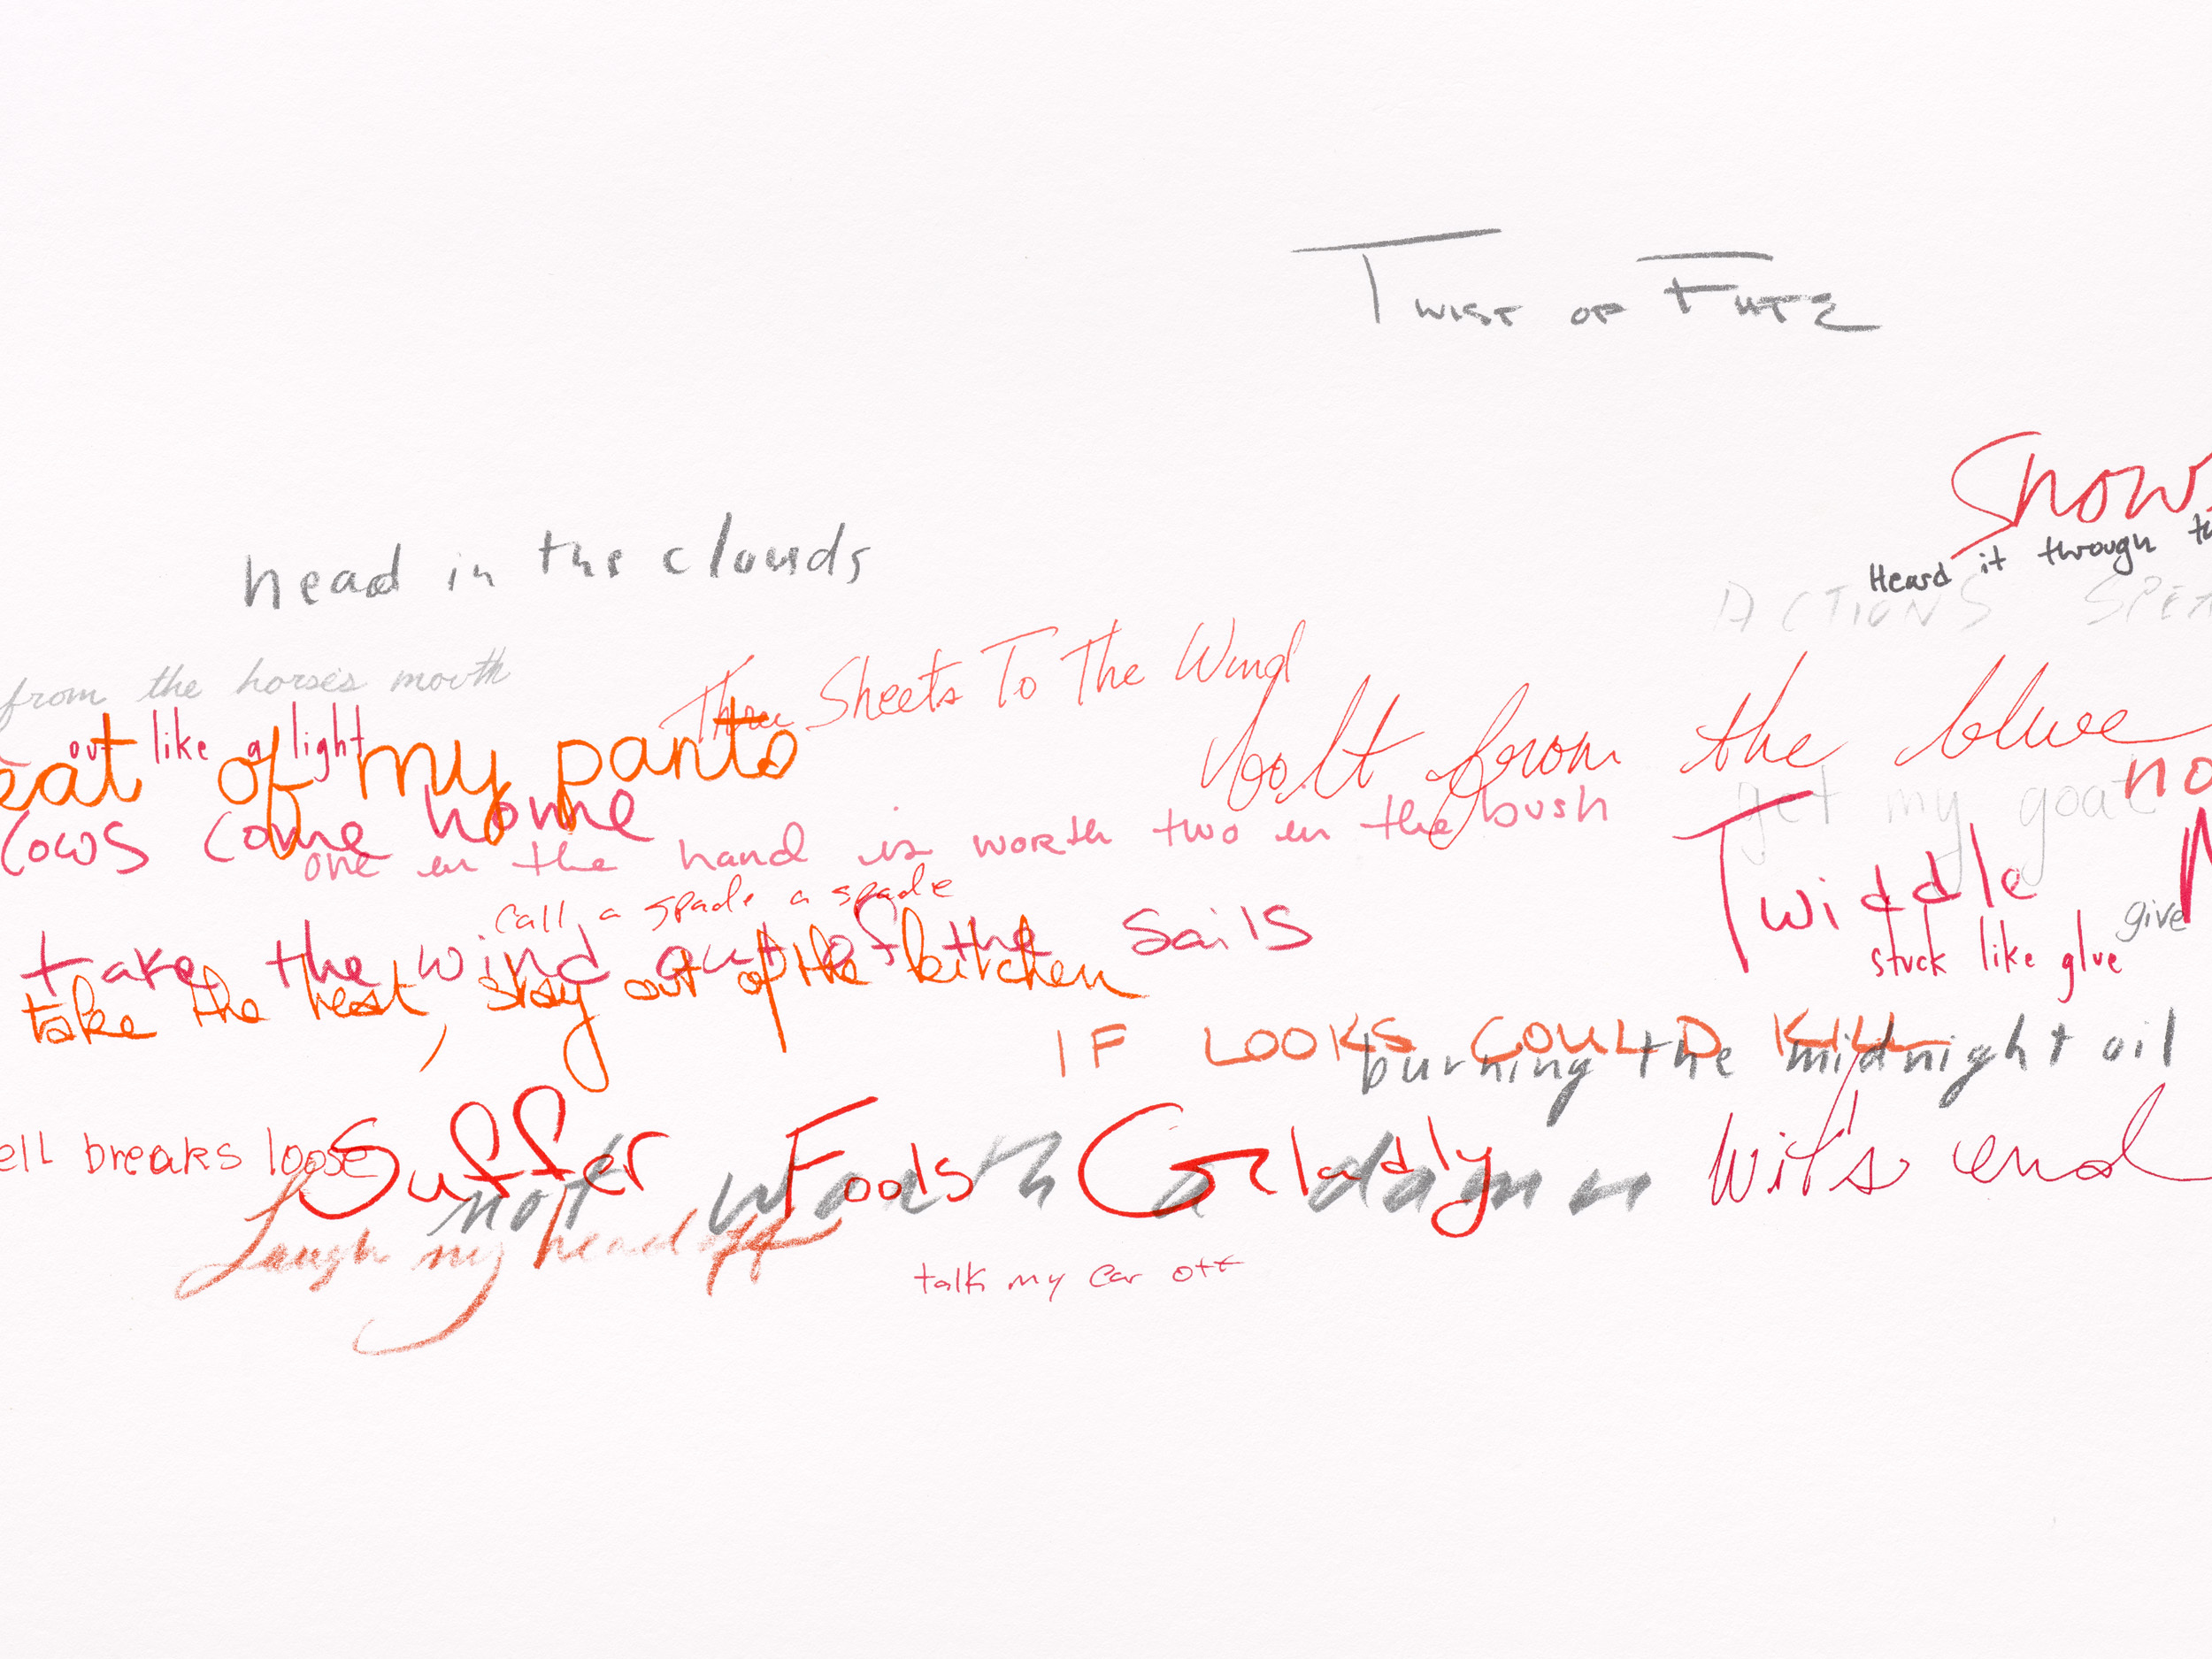 Twist of Fate
Snow
head in the clouds
Heard it through
ACTIONS
from the horse's mouth
Three Sheets To The Wind
out like a light
eat of my pants
bolt from the blue
no
get my goat
cows come home
one in the hand is worth two in the bush
Twiddle
call a spade a spade
give
take the wind out of the sails
stuck like glue
take the heat, stay out of the kitchen
IF LOOKS COULD KILL
burning the midnight oil
ell breaks loose
Suffer Fools Gladly
not worth a damn
wit's end
Laugh my head off
talk my ear off